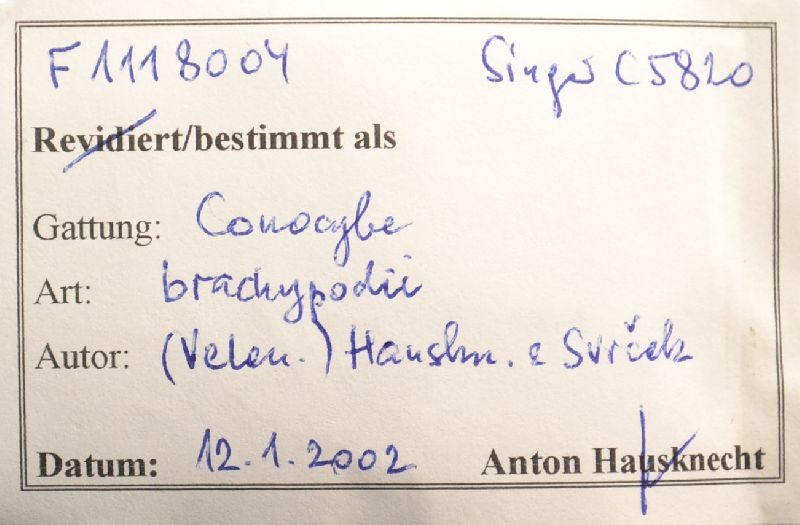 F1118004 Singer C5820
Revidiert/bestimmt als
Gattung: Conocybe
Art: brachypodii
Autor: (Velen.) Hauskn. & Svrček
Datum: 12.1.2002 Anton Hausknecht